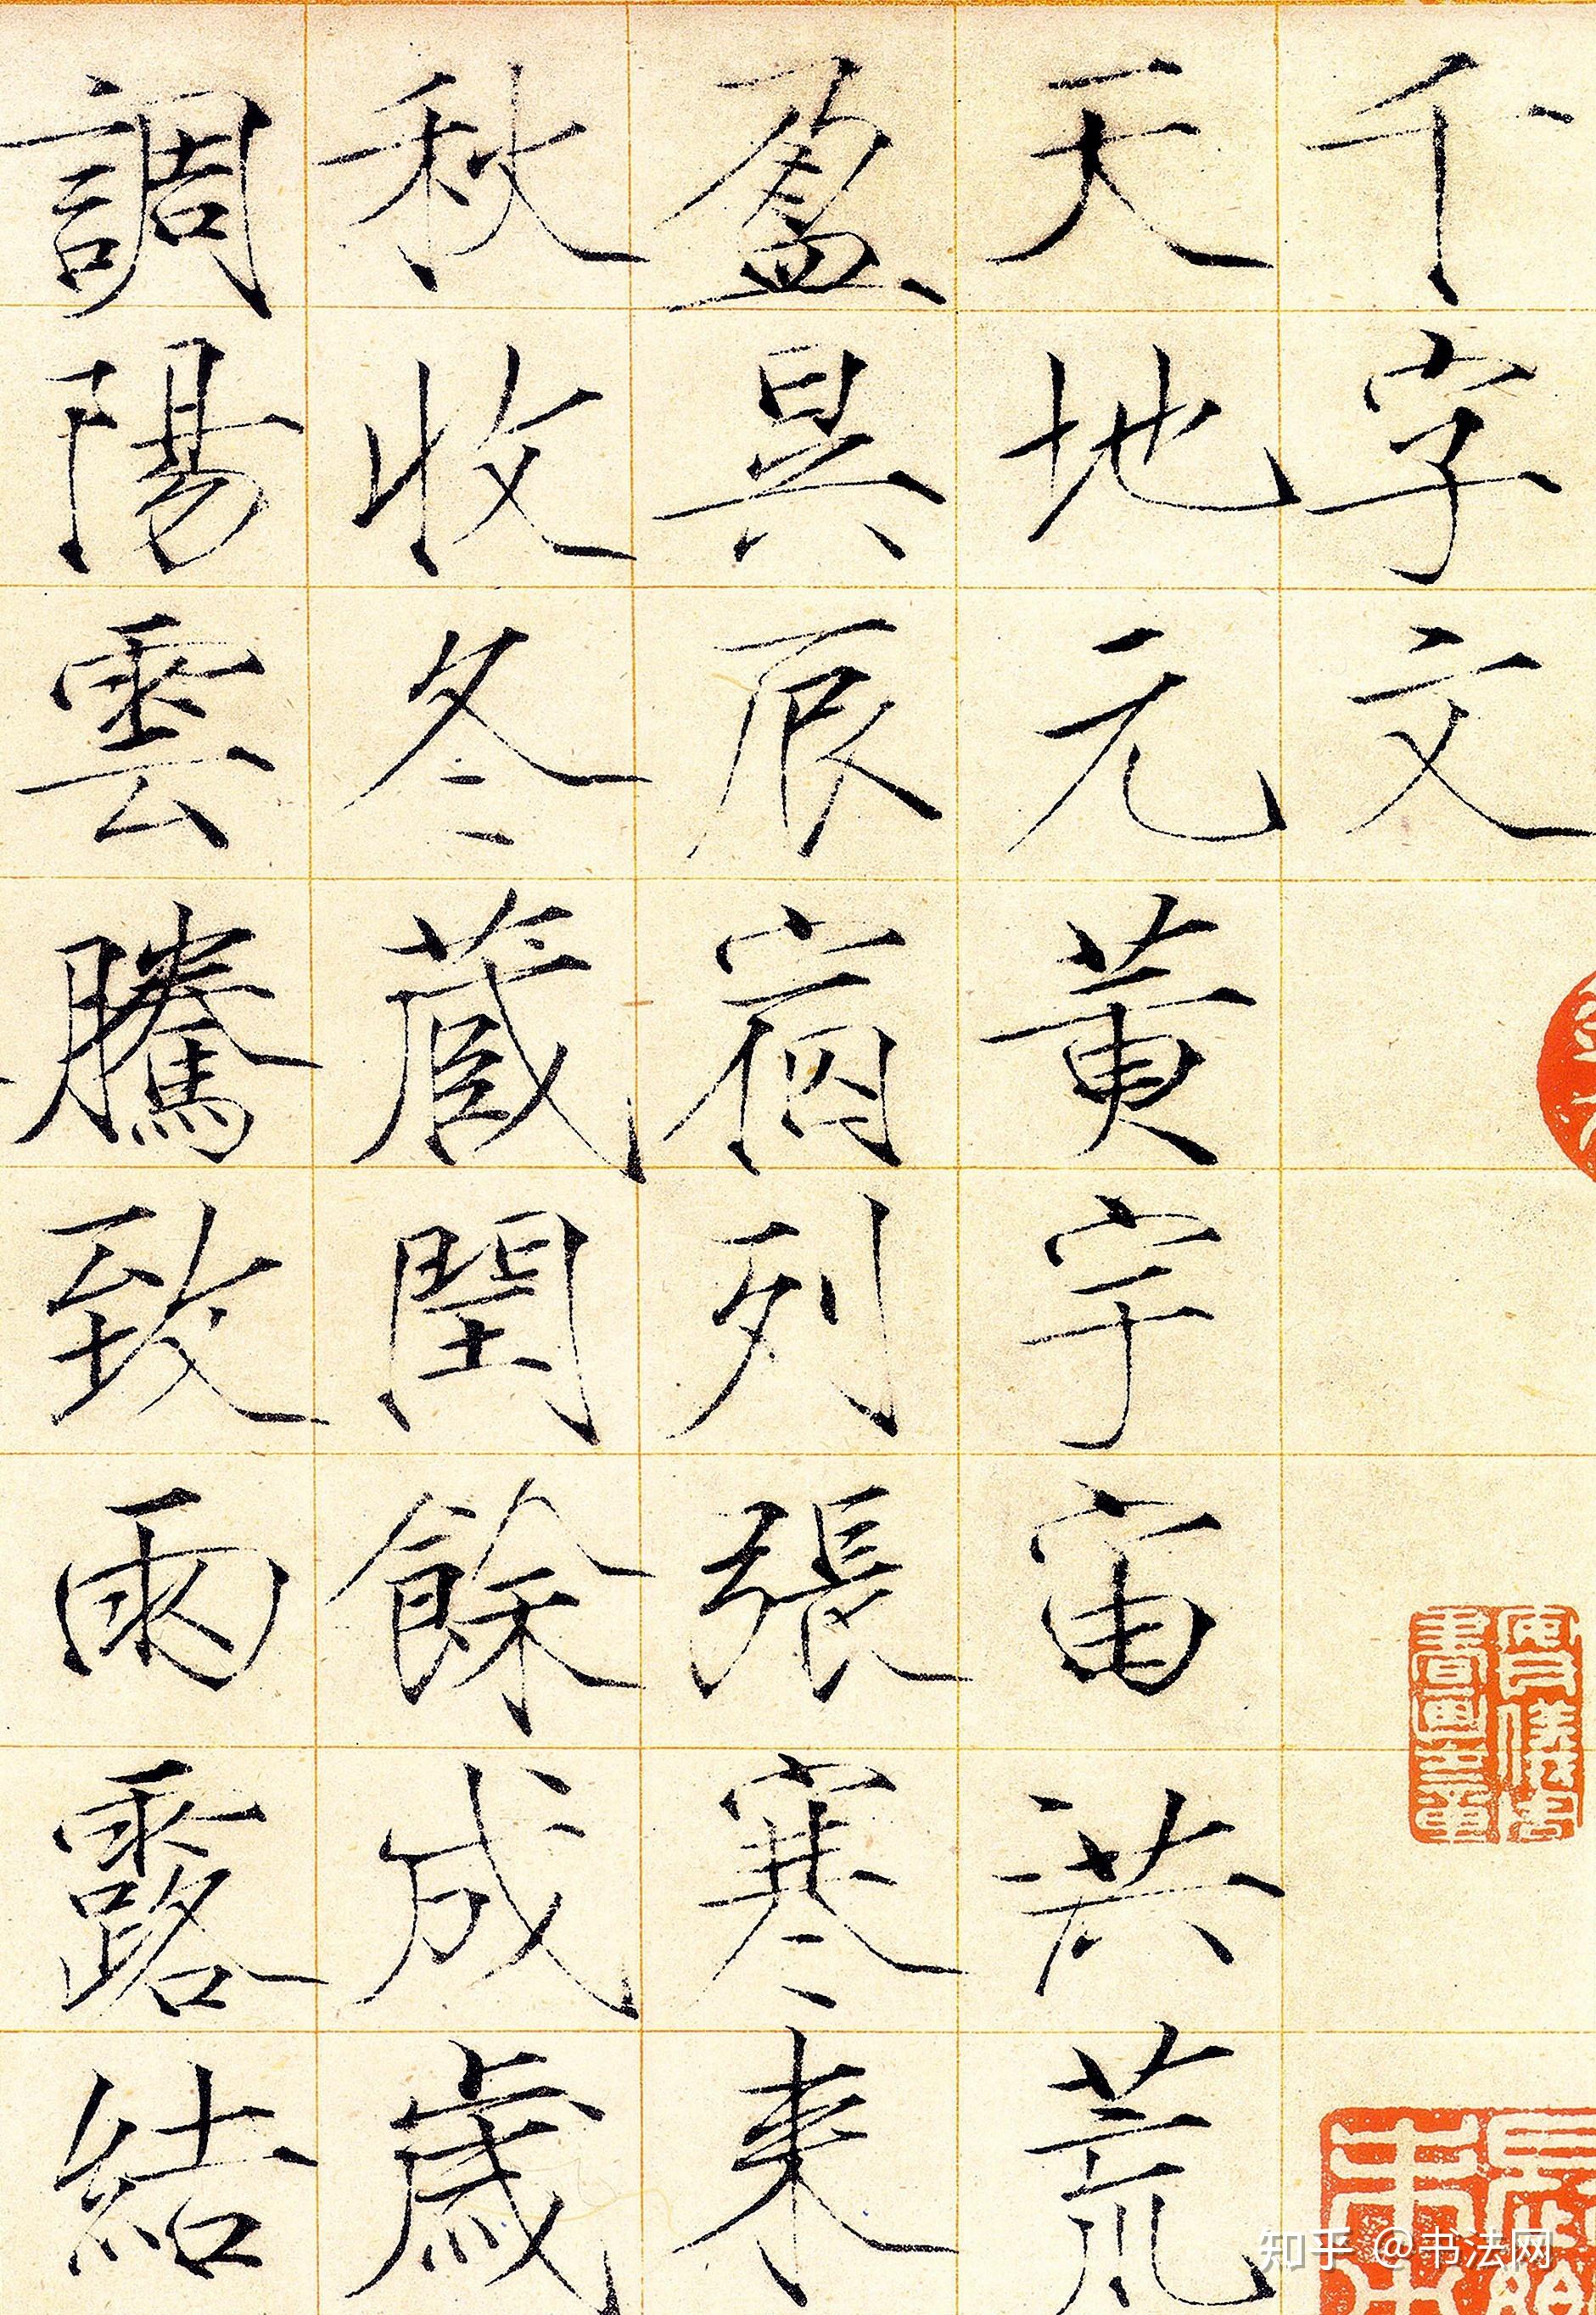 千字文
天地元黄宇宙洪荒
盈昃辰宿列張寒来
秋收冬藏閏餘成歲
調陽雲騰致雨露結
知乎 @书法网